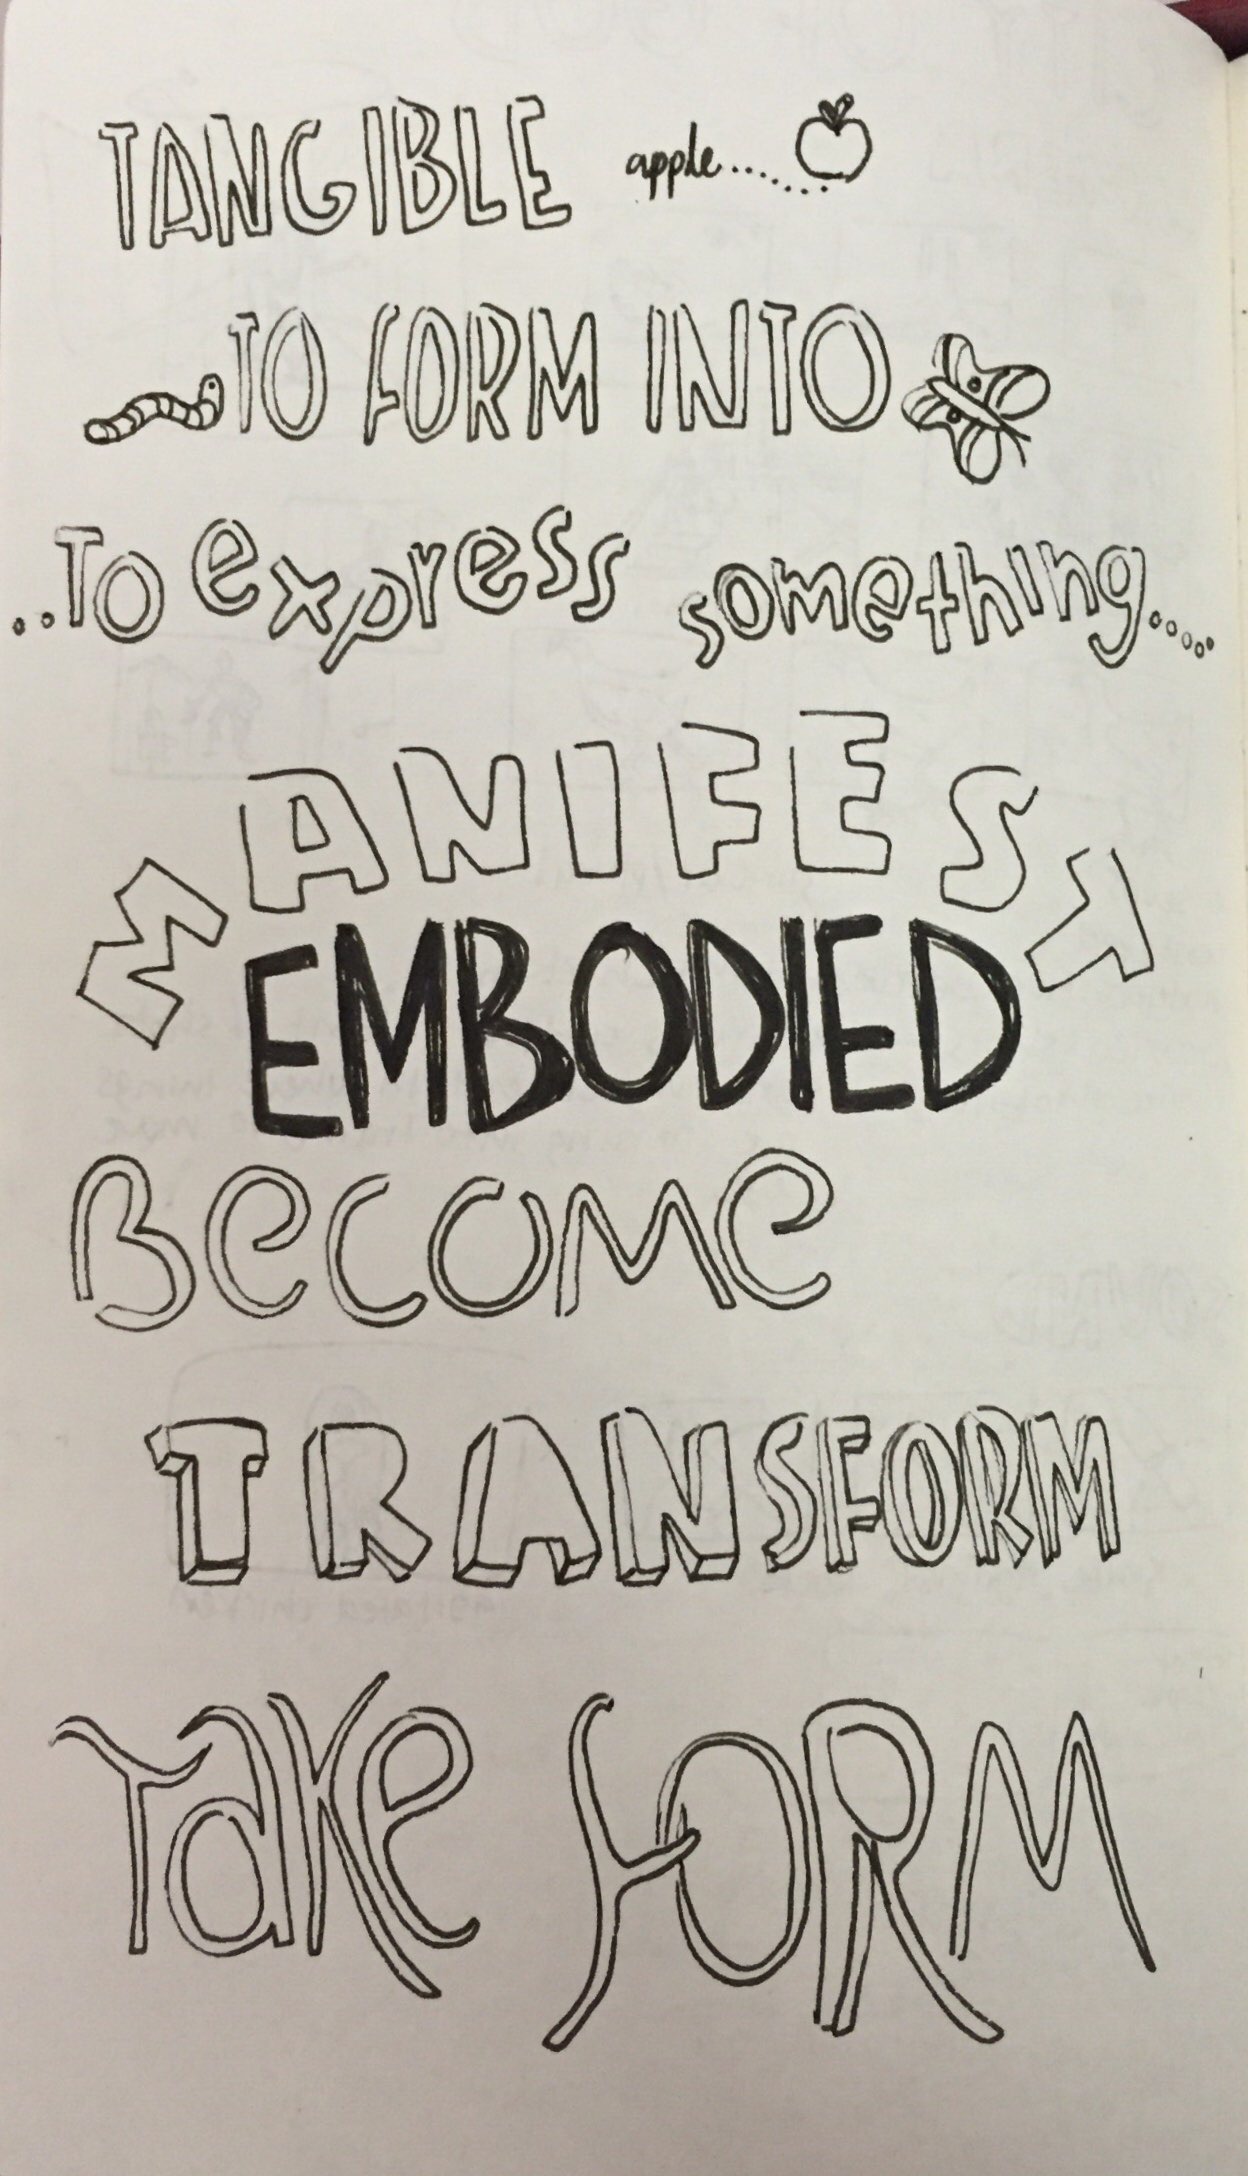 TANGIBLE apple........
TO FORM INTO
..To express something.....
MANIFEST
EMBODIED
BeCOMe
TRANSFORM
TaKe FORM